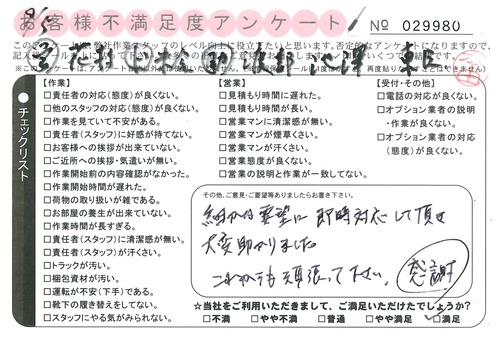 お客様不満足度アンケート
No 029980
8/5
【作業】
□責任者の対応(態度)が良くない。
□他のスタッフの対応(態度)が良くない。
□作業を見ていて不安がある。
□責任者(スタッフ)に好感が持てない。
□お客様への挨拶が出来ていない。
□ご近所への挨拶・気遣いが無い。
□作業開始前の内容確認がなかった。
□作業開始時間が遅れた。
□荷物の取り扱いが雑である。
□お部屋の養生が出来ていない。
□作業時間が長すぎる。
□責任者(スタッフ)に清潔感が無い。
□責任者(スタッフ)が汗くさい。
□トラックが汚い。
□梱包資材が汚い。
□運転が不安(下手)である。
□靴下の履き替えをしてない。
□スタッフにやる気がみられない。
【営業】
□見積もり時間に遅れた。
□見積もり時間が長い。
□営業マンに清潔感が無い。
□営業マンが煙草くさい。
□営業マンが汗くさい。
□営業態度が良くない。
□営業の説明と作業が一致してない。
【受付・その他】
□電話の対応が良くない。
□オプション業者の説明
・作業が良くない。
□オプション業者の対応
(態度)が良くない。
チェックリスト
その他、ご意見・ご要望等ありましたらお書き下さい。
細かな要望に即時対応して頂き
大変助かりました
これからも頑張って下さい。
感謝
☆当社をご利用いただきまして、ご満足いただけたでしょうか?
□不満 □やや不満 □普通 □やや満足 □満足